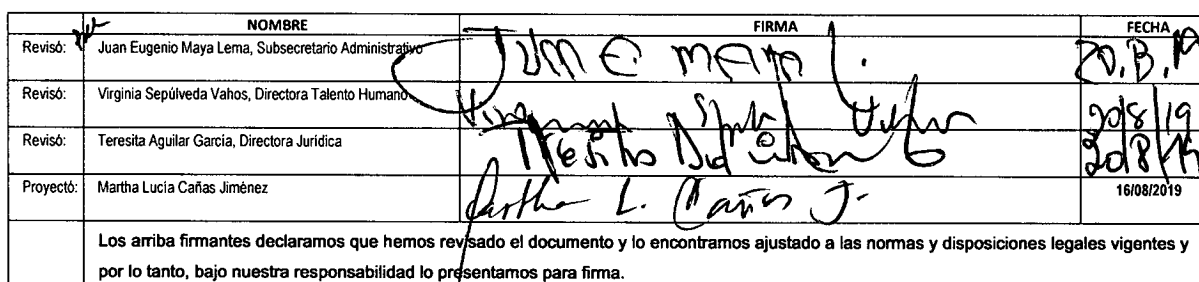 NOMBRE FIRMA FECHA
Revisó: Juan Eugenio Maya Lema, Subsecretario Administrativo Juan E Maya L. 20.8.19
Revisó: Virginia Sepúlveda Vahos, Directora Talento Humano Virginia 20/8/19
Revisó: Teresita Aguilar García, Directora Jurídica Teresita 20/8/19
Proyectó: Martha Lucía Cañas Jiménez Martha L. Cañas J. 16/08/2019
Los arriba firmantes declaramos que hemos revisado el documento y lo encontramos ajustado a las normas y disposiciones legales vigentes y
por lo tanto, bajo nuestra responsabilidad lo presentamos para firma.